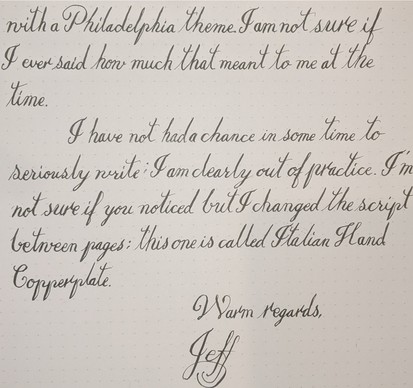 with a Philadelphia theme. I am not sure if
I ever said how much that meant to me at the
time.
I have not had a chance in some time to
seriously write; I am clearly out of practice. I'm
not sure if you noticed but I changed the script
between pages; this one is called Italian Hand
Copperplate.
Warm regards,
Jeff